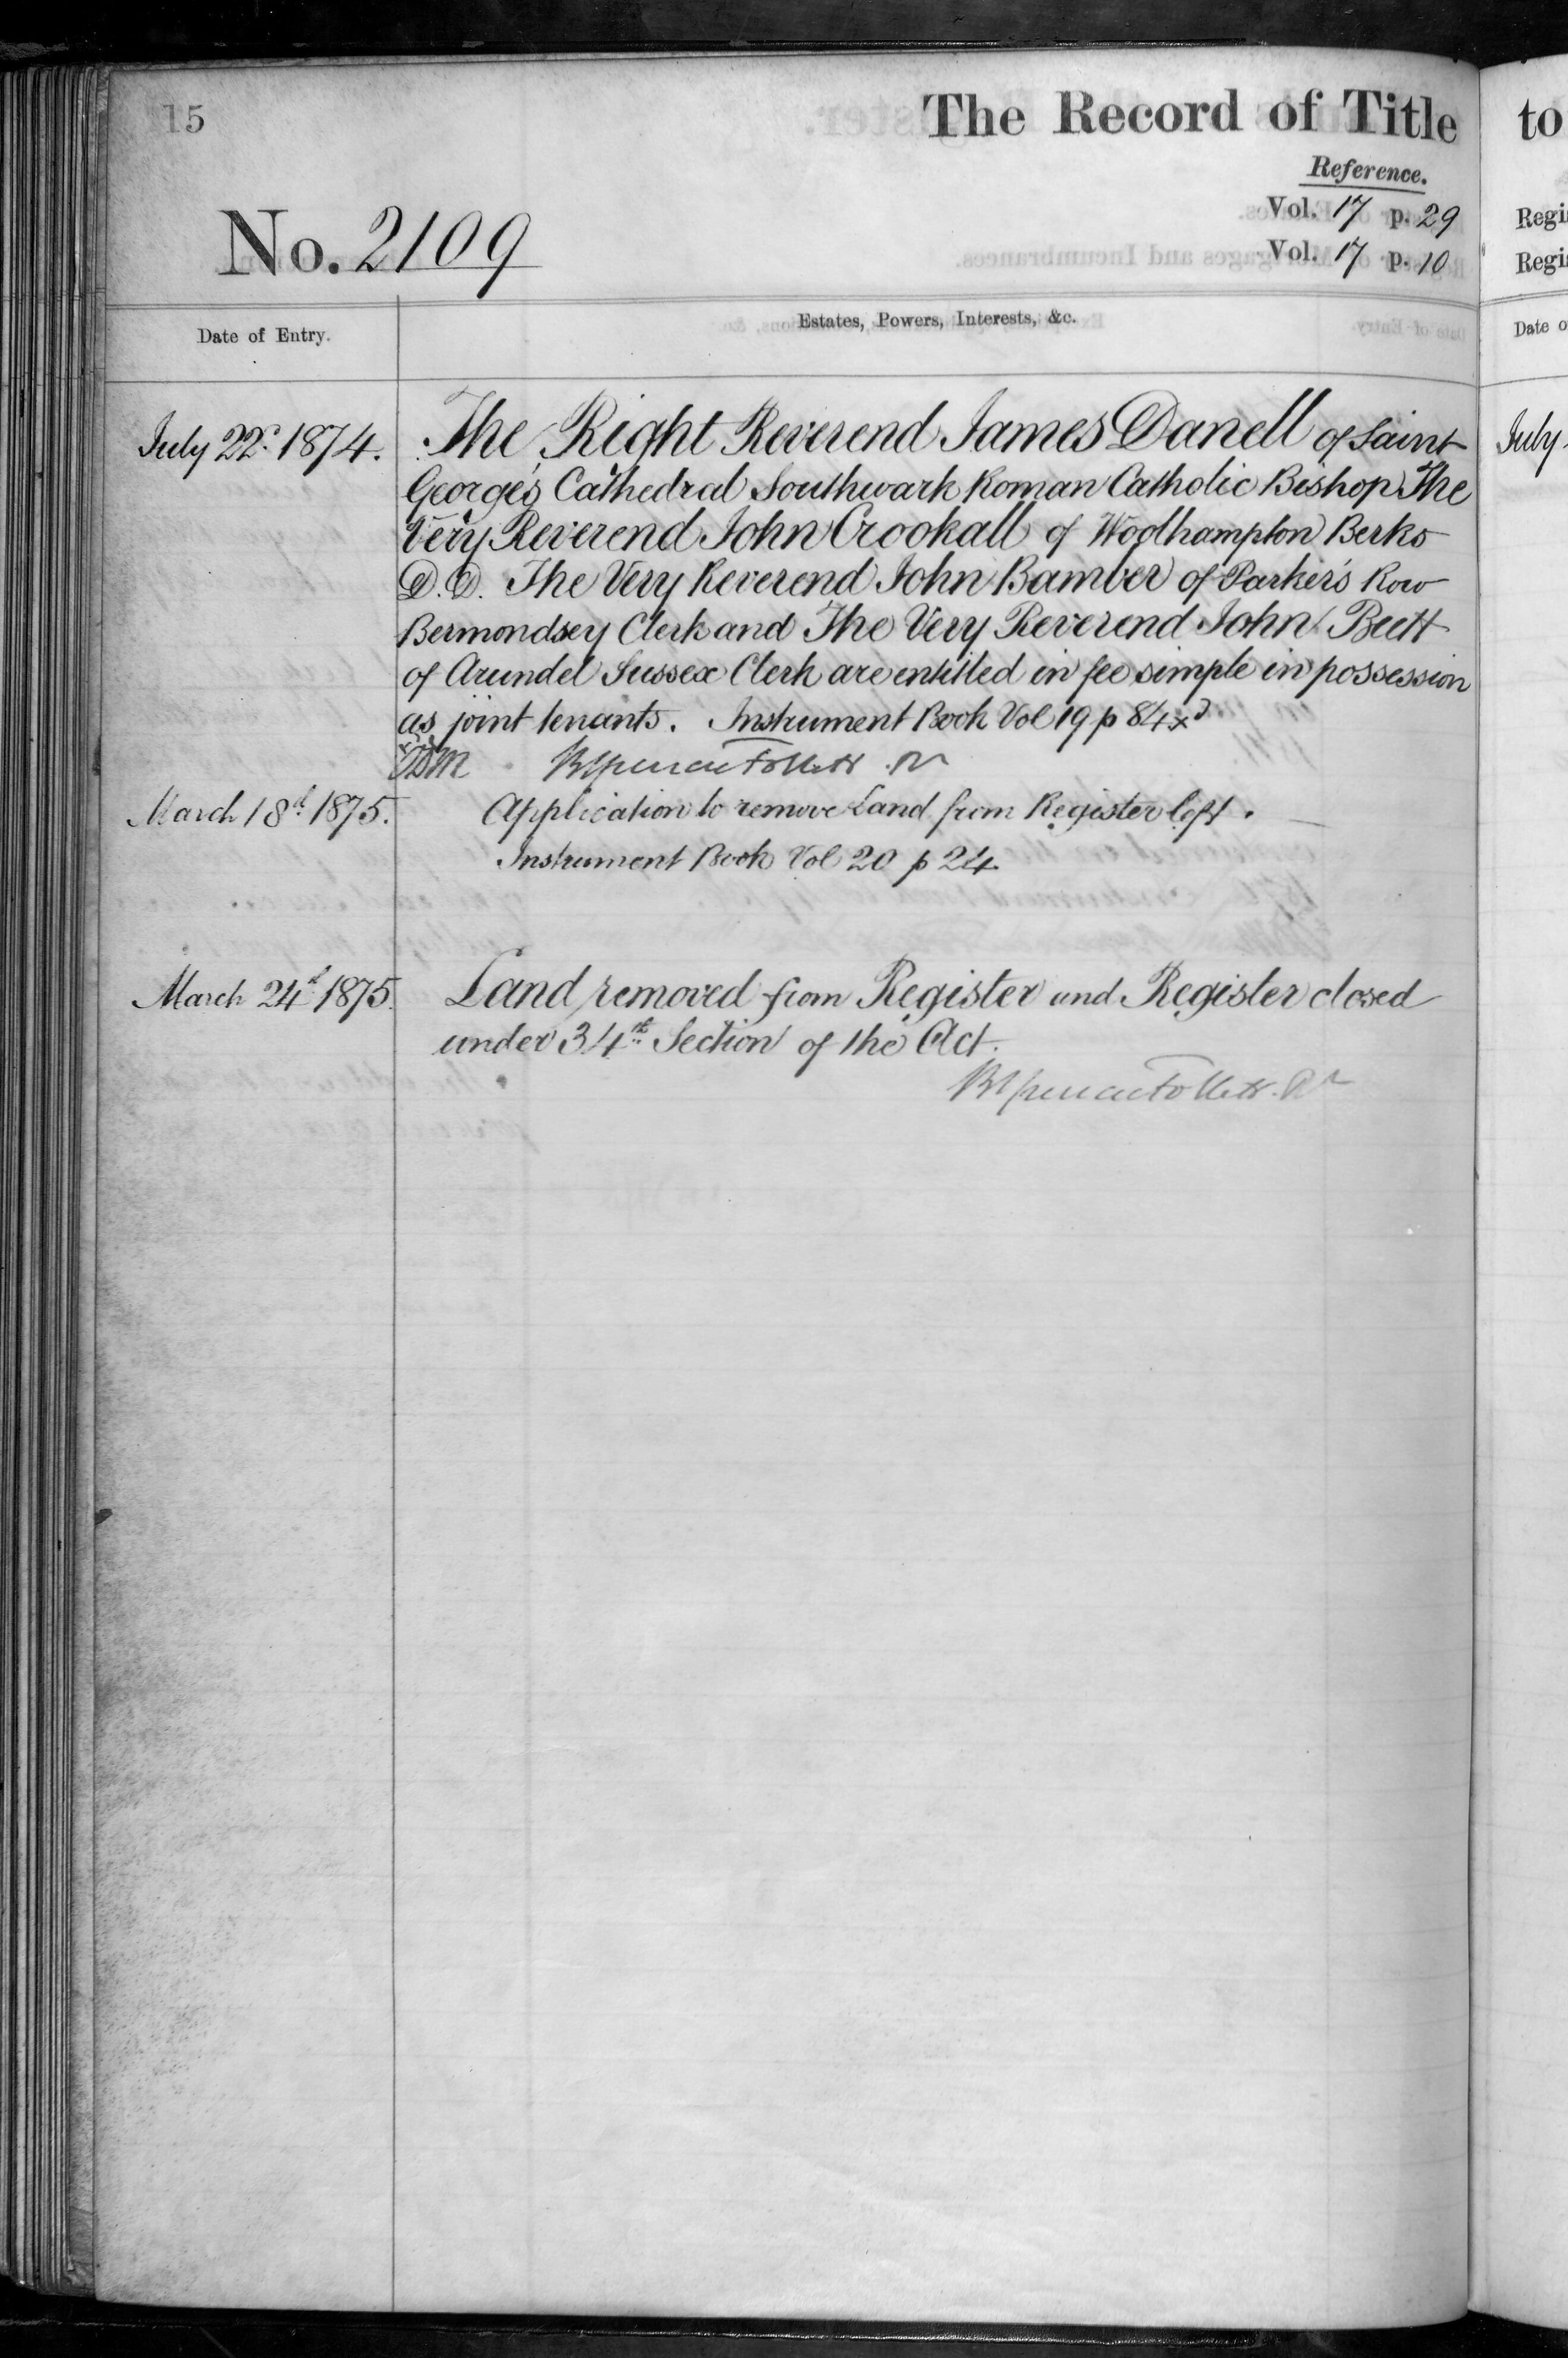 15
The Record of Title
Reference.
Vol. 17 p. 29
Vol. 17 p. 10
No. 2109
Date of Entry.
Estates, Powers, Interests, &c.
July 22d 1874.
The Right Reverend James Danell of Saint
George's Cathedral Southwark Roman Catholic Bishop The
Very Reverend John Crookall of Woolhampton Berks
D.D. The Very Reverend John Bamber of Parker's Row
Bermondsey Clerk and The Very Reverend John Butt
of Arundel Sussex Clerk are entitled in fee simple in possession
as joint tenants. Instrument Book Vol 19 p 84
March 18th 1875.
Application to remove Land from Register left.
Instrument Book Vol 20 p 24
March 24th 1875
Land removed from Register and Register closed
under 34th Section of the Act.
to
Regi
Regi
Date o
July